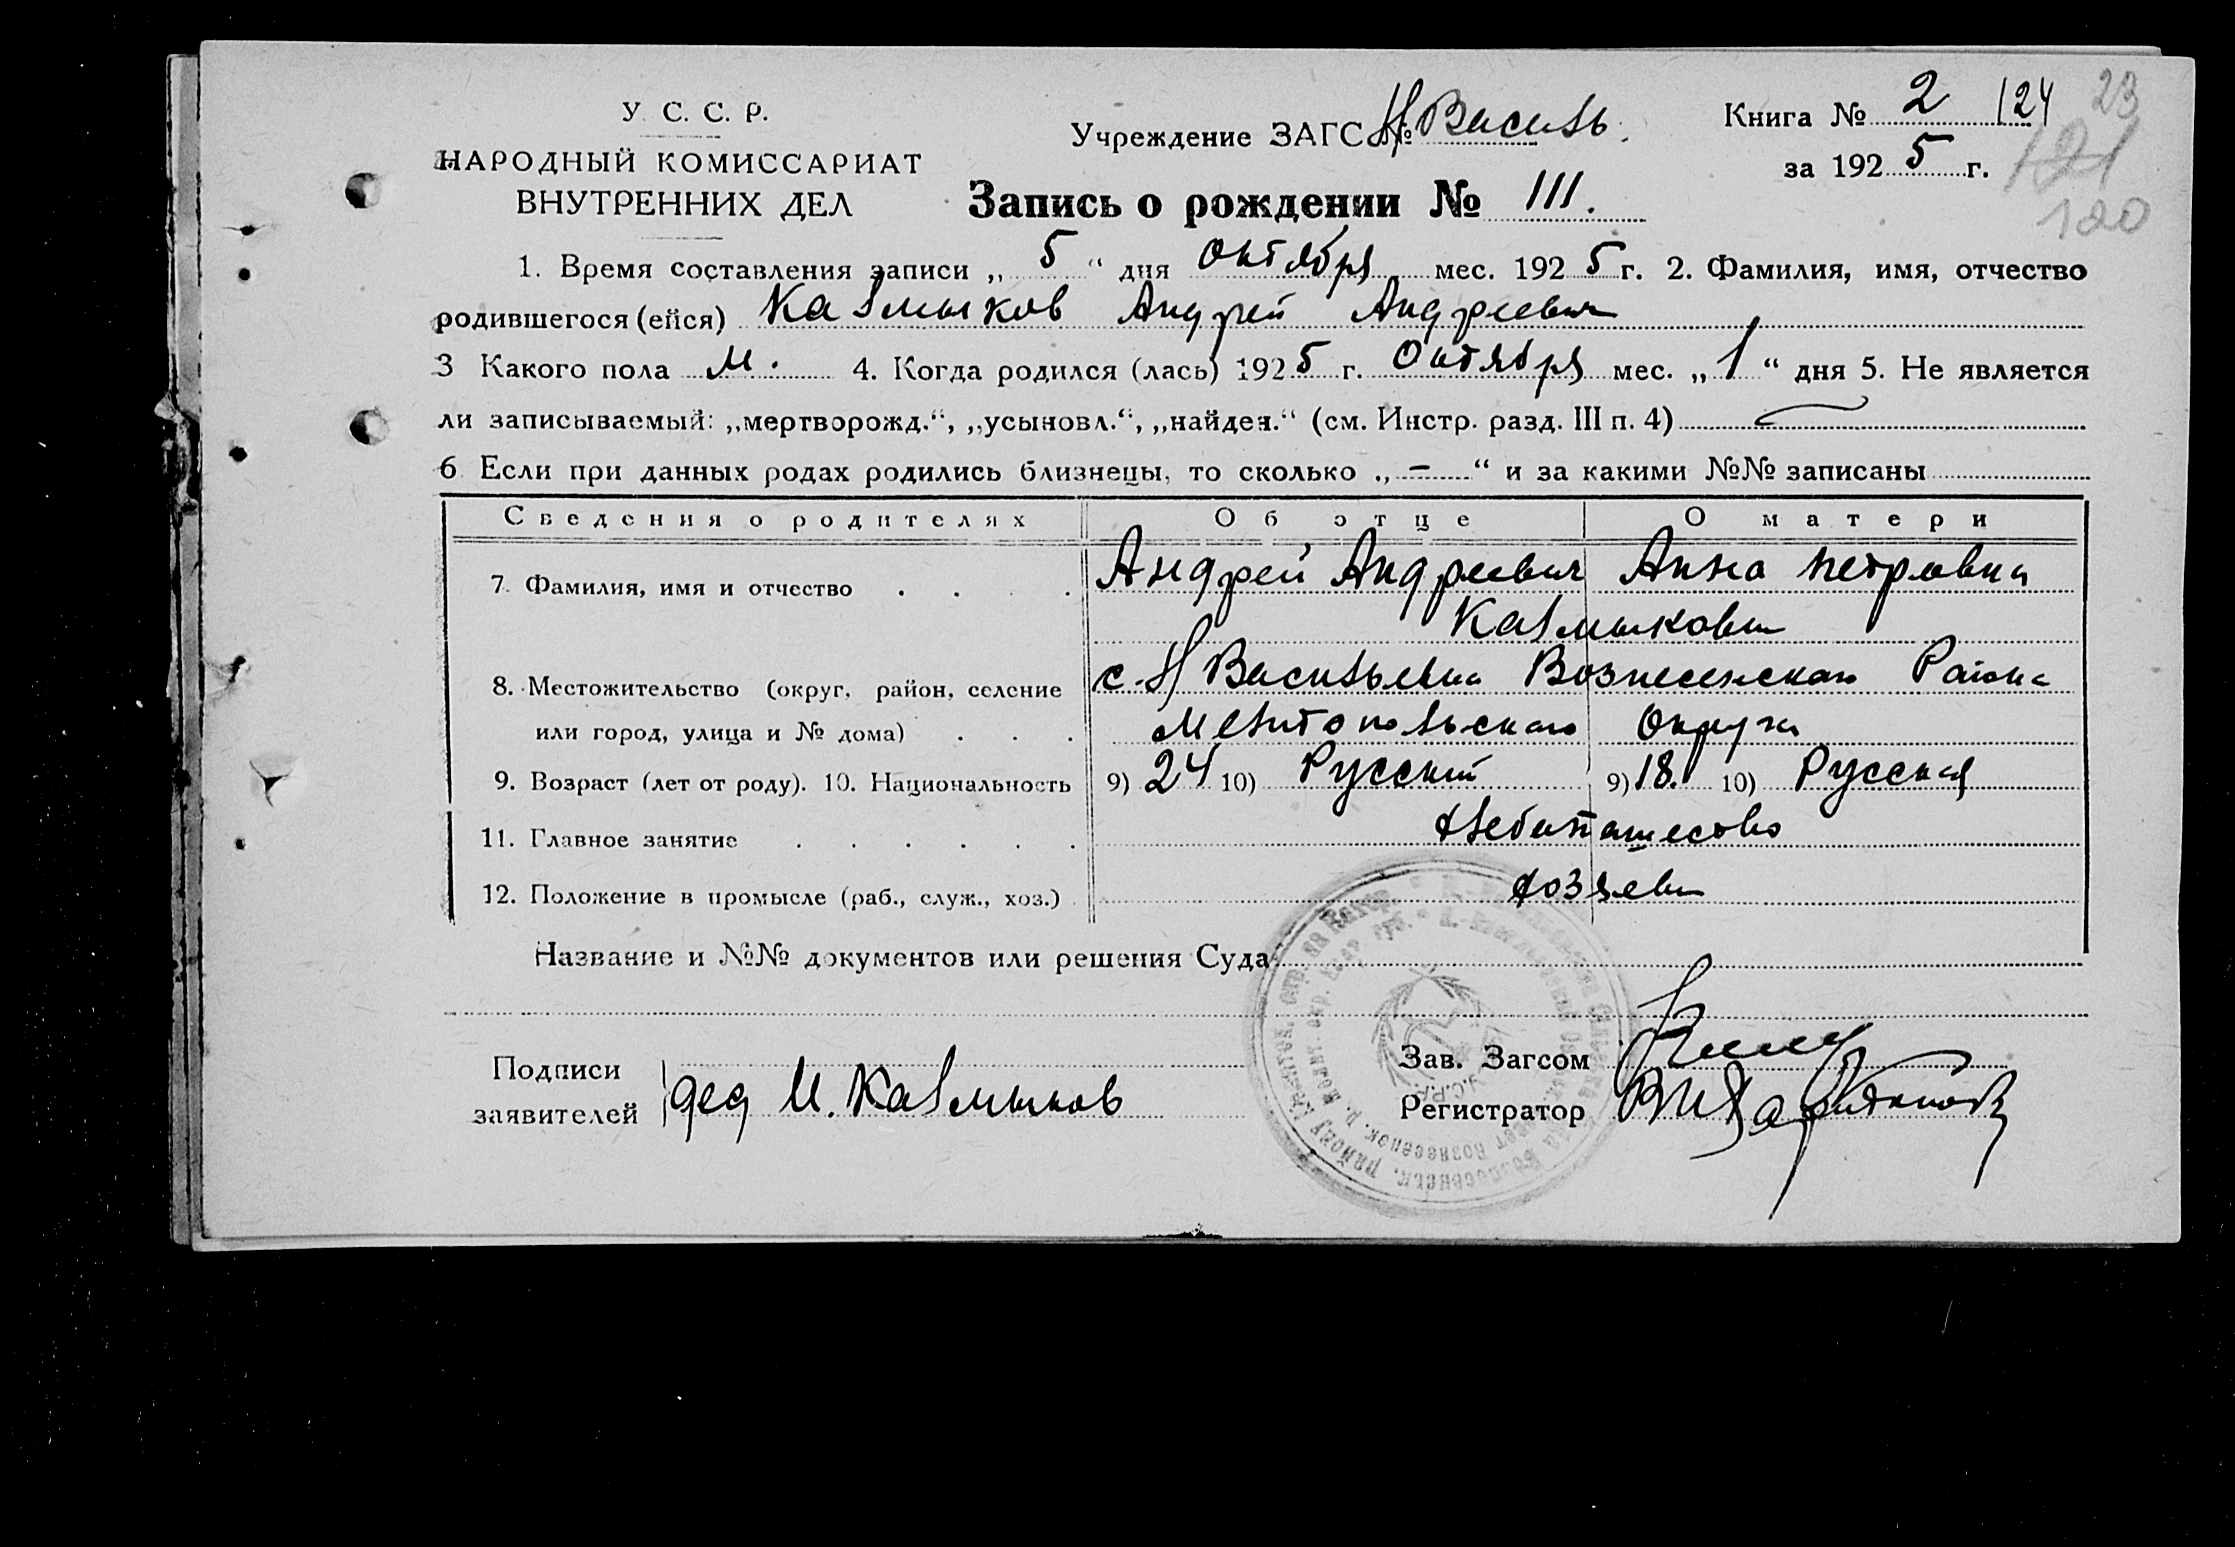 У. С. С. Р.
НАРОДНЫЙ КОМИССАРИАТ
ВНУТРЕННИХ ДЕЛ
Учреждение ЗАГС № Н Василь.
Книга № 2 124 23
за 1925 г. 121
120
Запись о рождении № 111.
1. Время составления записи „5“ дня Октября мес. 1925 г. 2. Фамилия, имя, отчество
родившегося (ейся) Калмыков Андрей Андреевич
3 Какого пола м. 4. Когда родился (лась) 1925 г. Октября мес. „1“ дня 5. Не является
ли записываемый: „мертворожд.“, „усыновл.“, „найден.“ (см. Инстр. разд. III п. 4)
6 Если при данных родах родились близнецы, то сколько „-“ и за какими №№ записаны
Сведения о родителях Об отце О матери
7. Фамилия, имя и отчество . . . . Андрей Андреевич Анна Петровна
Калмыковы
8. Местожительство (округ, район, селение с. Н Васильевка Вознесенского Района
или город, улица и № дома) . . . Мелитопольского Округа
9. Возраст (лет от роду). 10. Национальность 9) 24 10) Русский 9) 18. 10) Русская
11. Главное занятие . . . . . . Хлебопашество
12. Положение в промысле (раб., служ., хоз.) Хозяева
Название и №№ документов или решения Суда
Подписи
заявителей дед И. Калмыков
Зав. Загсом
Регистратор